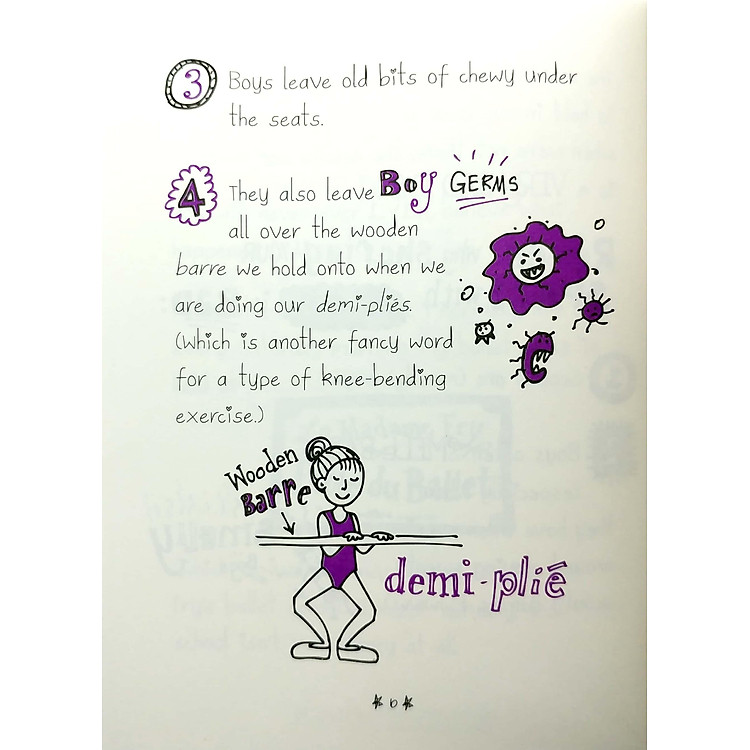 3 Boys leave old bits of chewy under
the seats.
4 They also leave Boy GERMS
all over the wooden
barre we hold onto when we
are doing our demi-pliés.
(Which is another fancy word
for a type of knee-bending
exercise.)
Wooden
Barre
demi-plié
6